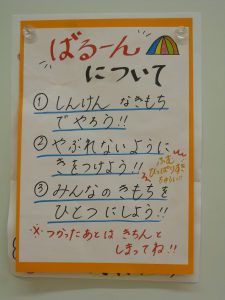 ばるーん
について
① しんけん なきもち
でやろう!!
② やぶれないように
きをつけよう!!
ふむ
ひっぱりすぎ
③ みんなの きもちを
ひとつ にしよう!!
※ つかったあとは きちんと
しまってね!!